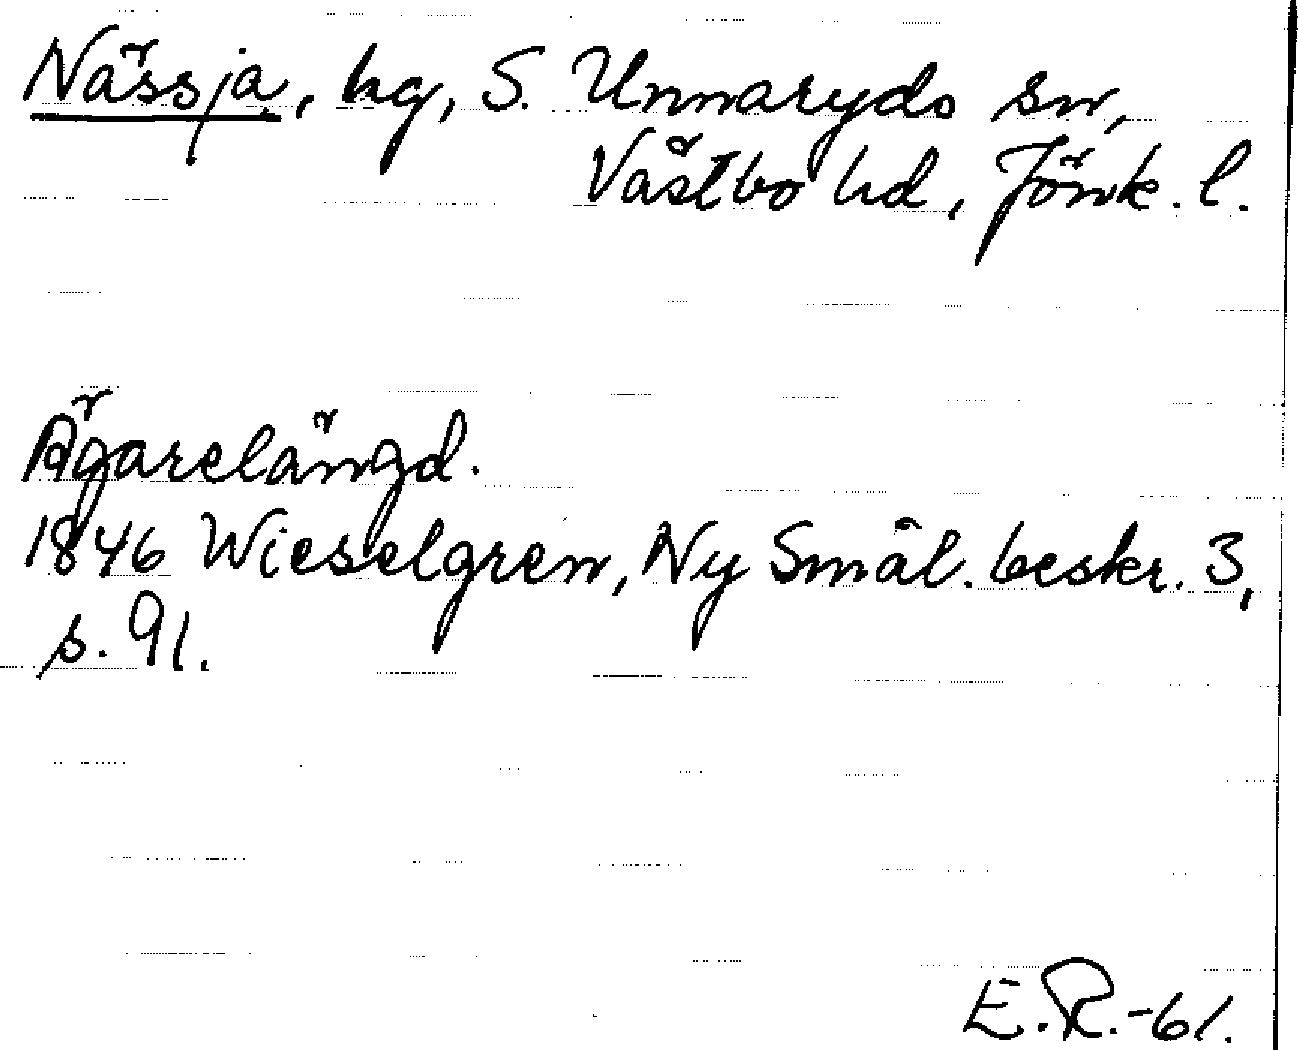 Nässja, hg, S. Unnaryds sn,
Västbo hd, Jönk. l.
Ägarelängd.
1846 Wieselgren, Ny Smål. beskr. 3,
s. 91.
E.R.-61.